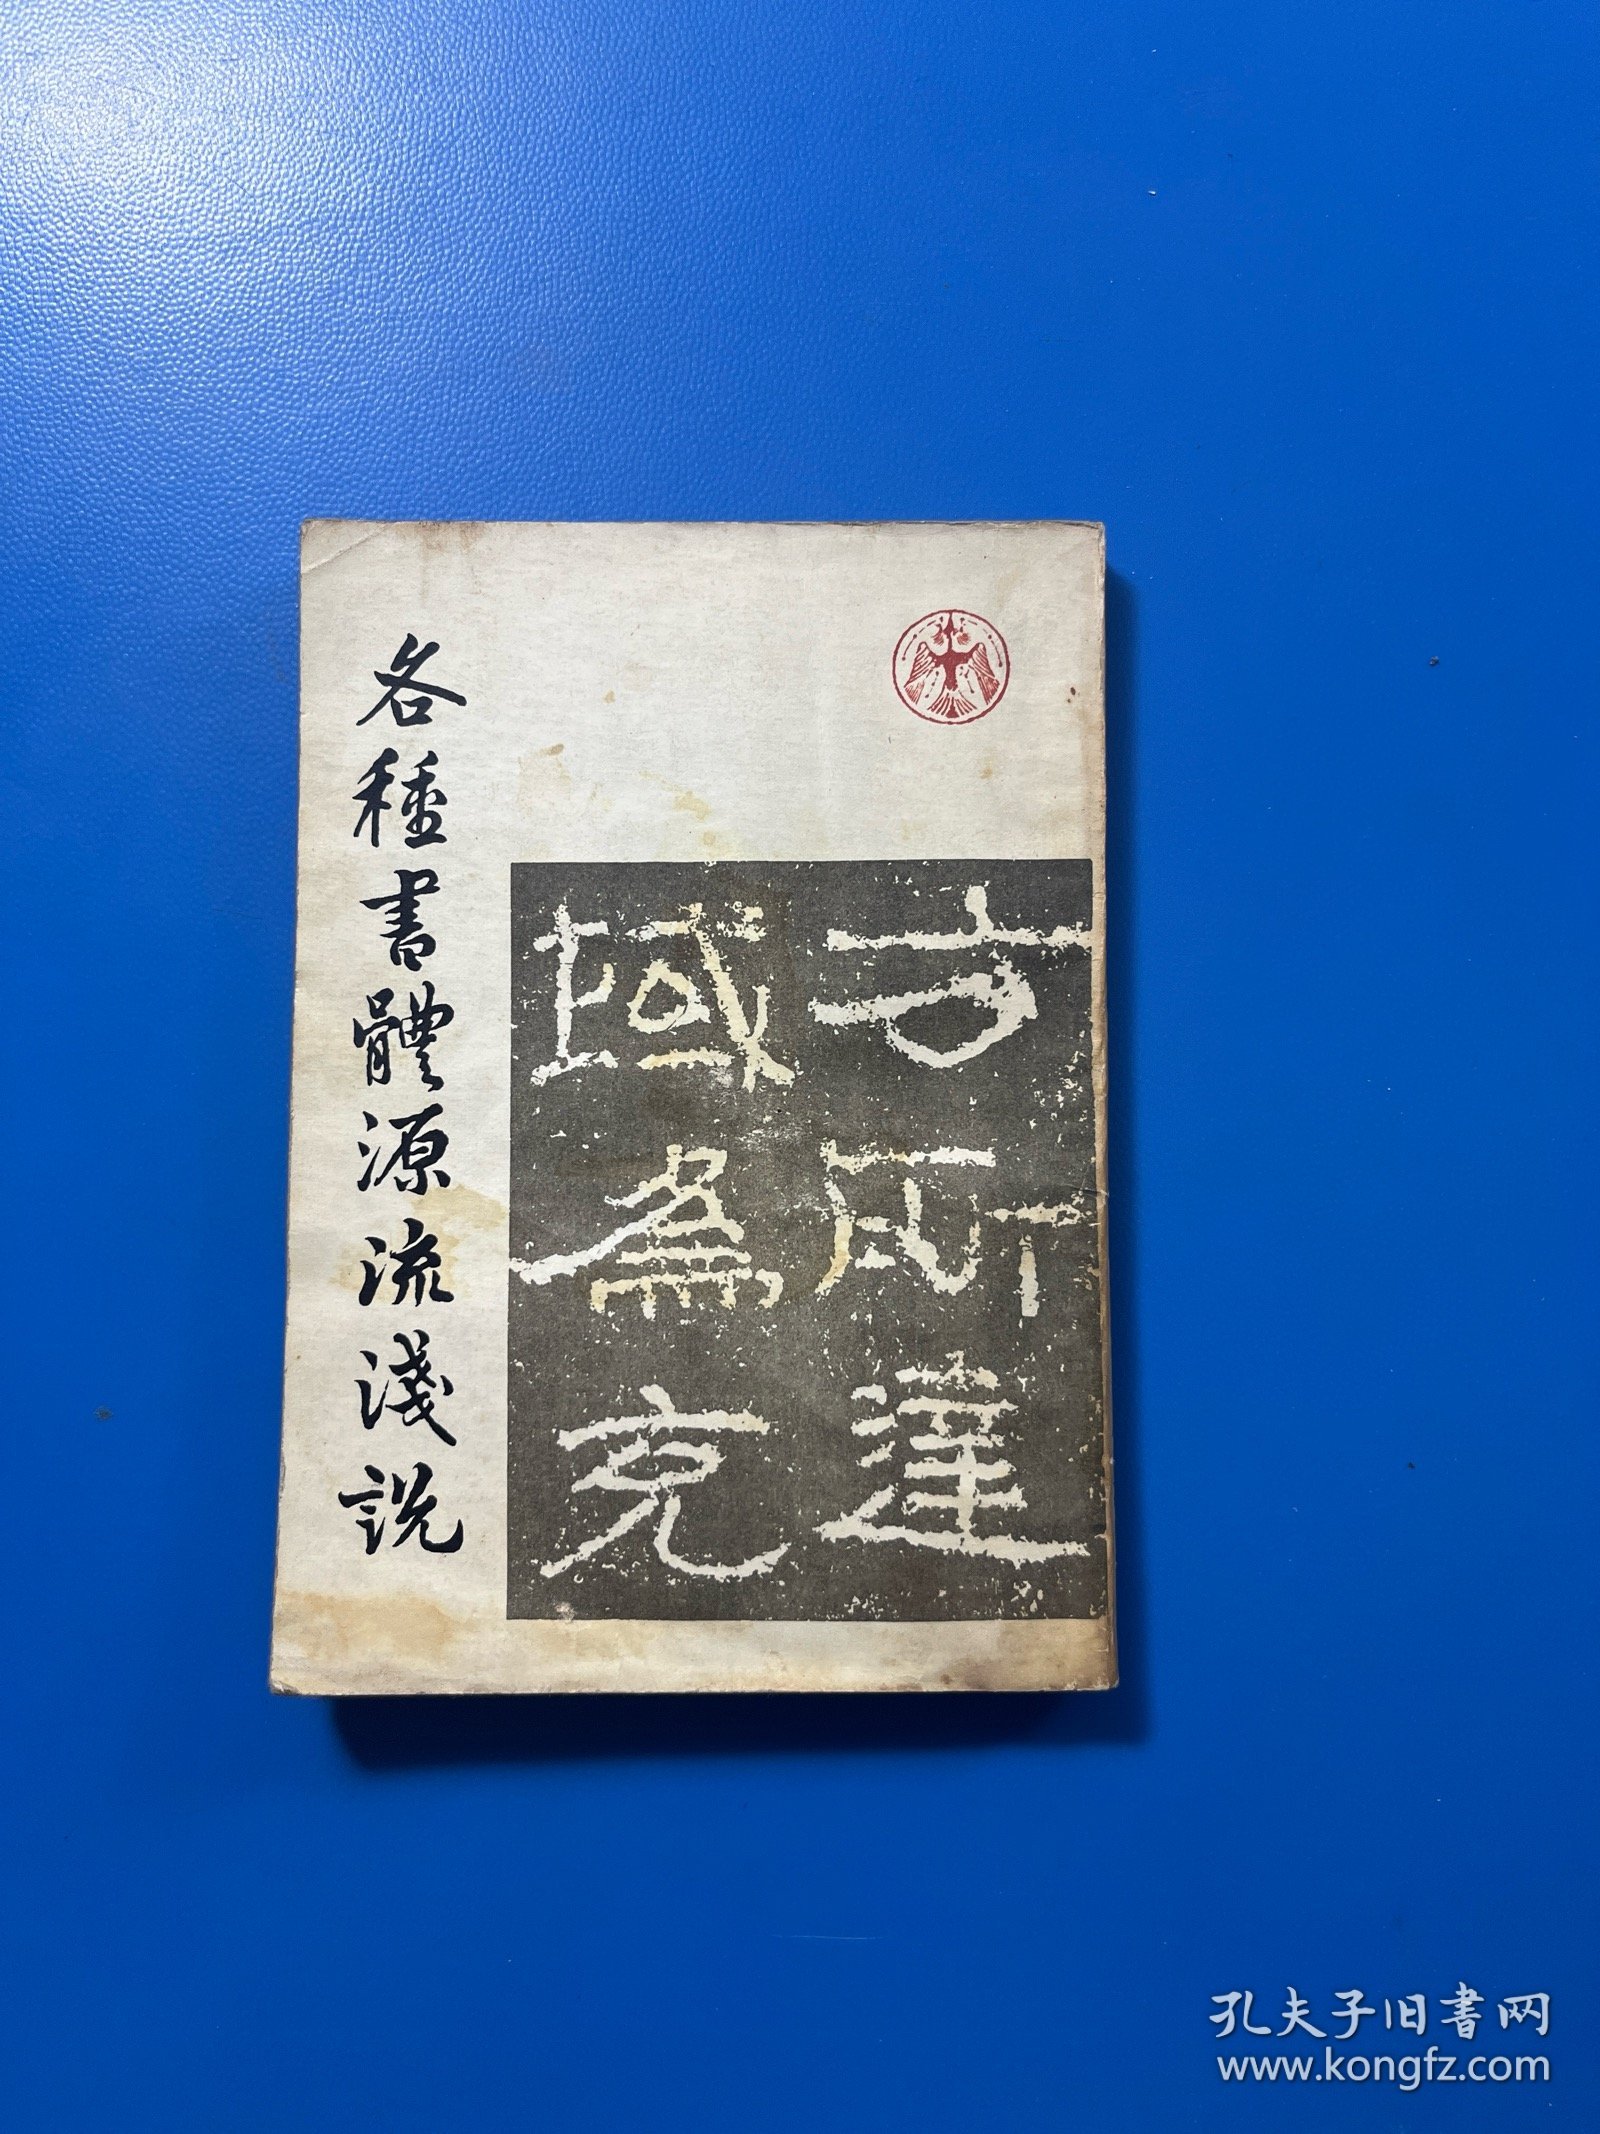 各種書體源流淺説
方所達
域爲充
孔夫子旧书网
www.kongfz.com